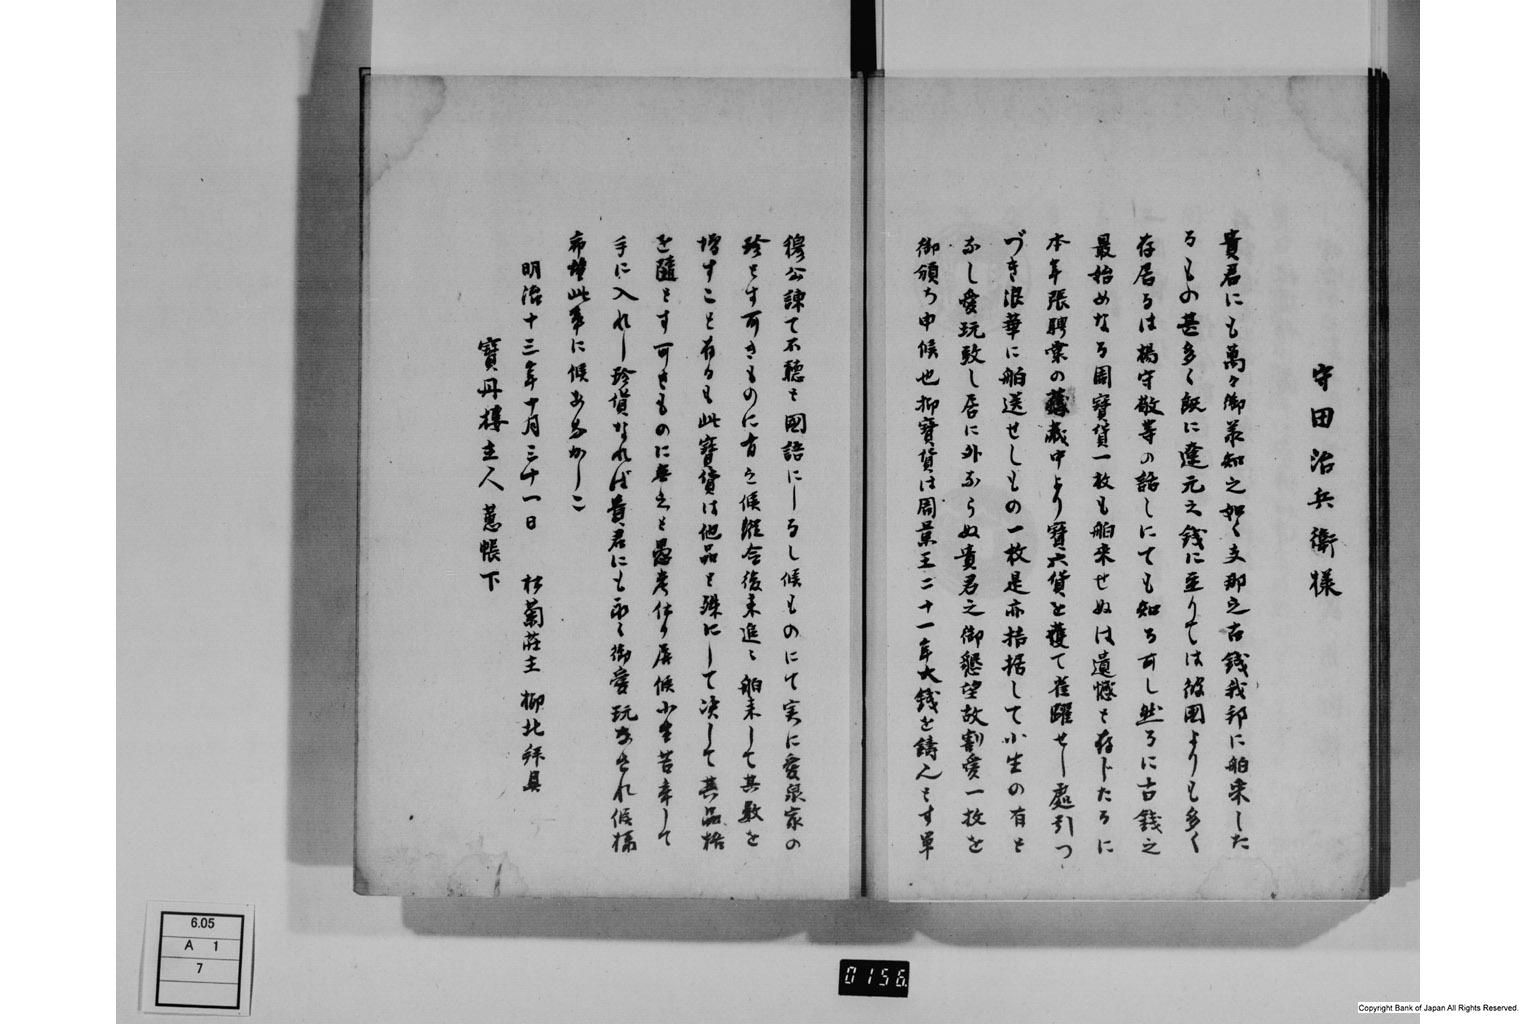 守田治兵衛様
貴君にも萬々御承知之如く支那之古銭我邦に舶来した
るもの甚多く既に遼元之銭に至りては彼国よりも多く
存居るは楊守敬等の話しにても知る可し然るに古銭之
最始めなる周寳貨一枚も舶来せぬは遺憾と存じたるに
本年張騁棠の蔵中より寳六貨を獲て雀躍せし處引つ
づき浪華に舶送せしもの一枚是亦拮据して小生の有と
なし愛玩致し居に外ならぬ貴君之御懇望故割愛一枚を
御頒ち申候也抑寳貨は周景王二十一年大銭を鋳んとす単
穆公諫て不聴と國語にしるし候ものにて実に愛泉家の
珍とす可きものに有之候縦令後来追々舶来して其数を
増すこと有るも此寳貨は他品と殊にして决して其品格
を隨とす可きものに無之と愚考仕り居候小生苦辛して
手に入れし珍貨なれば貴君にも御愛玩なされ候様
希望此事に候あなかしこ
明治十三年十月三十一日 松菊荘主 柳北拝具
寳丹樓主人 蕙帳下
6.05
A 1
7
0156
Copyright Bank of Japan All Rights Reserved.